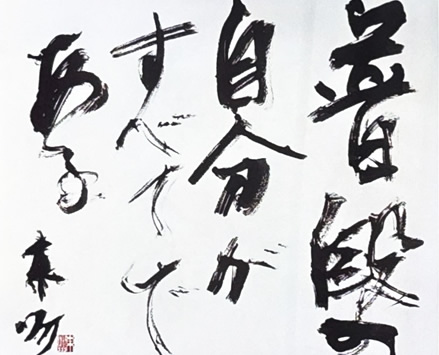 普段の
自分が
すべてで
ある